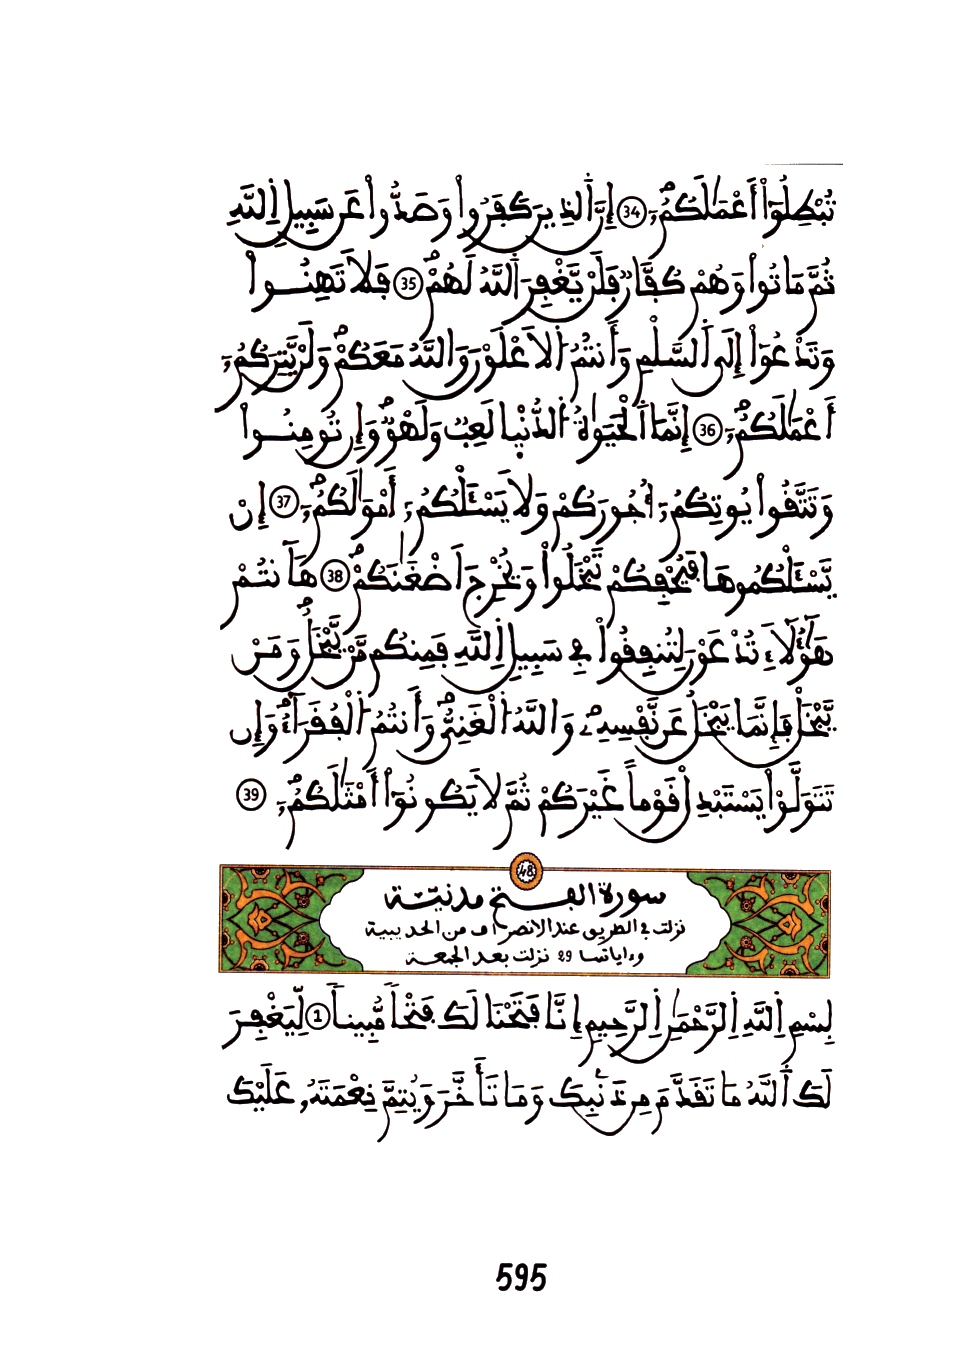 تُبْطِلُوٓاْ أَعْمَٰلَكُمُۥٓ 34 إِنَّ ٱلذِينَ كَفَرُواْ وَصَدُّواْ عَن سَبِيلِ ٱِللَّهِ
ثُمَّ مَاتُواْ وَهُمْ كُفَّارٞ فَلَنْ يَّغْفِرَ ٱَللَّهُ لَهُمُۥٓ 35 فَلَا تَهِنُواْ
وَتَدْعُوٓاْ إِلَى ٱَلسَّلْمِ وَأَنتُمُ ٱُلَاعْلَوْنَ وَاللَّهُ مَعَكُمْ وَلَنْ يَّتِرَكُمُۥٓ
أَعْمَٰلَكُمُۥٓ 36 إِنَّمَا ٱَلْحَيَوٰةُ ٱُلدُّنْيا لَعِبٞ وَلَهْوٞ وَإِن تُومِنُواْ
وَتَتَّقُواْ يُوتِكُمُۥٓ أُجُورَكُمْ وَلَا يَسْـَٔلْكُمُۥٓ أَمْوَٰلَكُمُۥٓ 37 إِنْ
يَّسْـَٔلْكُمُوهَا فَيُحْفِكُمْ تَبْخَلُواْ وَيُخْرِجَ اَضْغَٰنَكُمْ 38 هَآنتُمْ
هَٰٓؤُلَآءِ تُدْعَوْنَ لِتُنفِقُواْ فِي سَبِيلِ ٱِللَّهِ فَمِنكُم مَّنْ يَّبْخَلُ وَمَنْ
يَّبْخَلْ فَإِنَّمَا يَبْخَلُ عَن نَّفْسِهِۦ وَاللَّهُ ٱُلْغَنِيُّ وَأَنتُمُ ٱُلْفُقَرَآءُ وَإِن
تَتَوَلَّوْاْ يَسْتَبْدِلْ قَوْماً غَيْرَكُمْ ثُمَّ لَا يَكُونُوٓاْ أَمْثَٰلَكُمُۥٓ 39
48
سورة الفتح مدنيّة
نزلت في الطريق عند الانصراف من الحديبية
وءاياتها 29 نزلت بعد الجمعة
بِسْمِ ٱِللَّهِ ٱِلرَّحْمَٰنِ ٱِلرَّحِيمِ إِنَّا فَتَحْنَا لَكَ فَتْحاٗ مُّبِيناٗ 1 لِّيَغْفِرَ
لَكَ ٱَللَّهُ مَا تَقَدَّمَ مِن ذَنۢبِكَ وَمَا تَأَخَّرَ وَيُتِمَّ نِعْمَتَهُۥ عَلَيْكَ
595